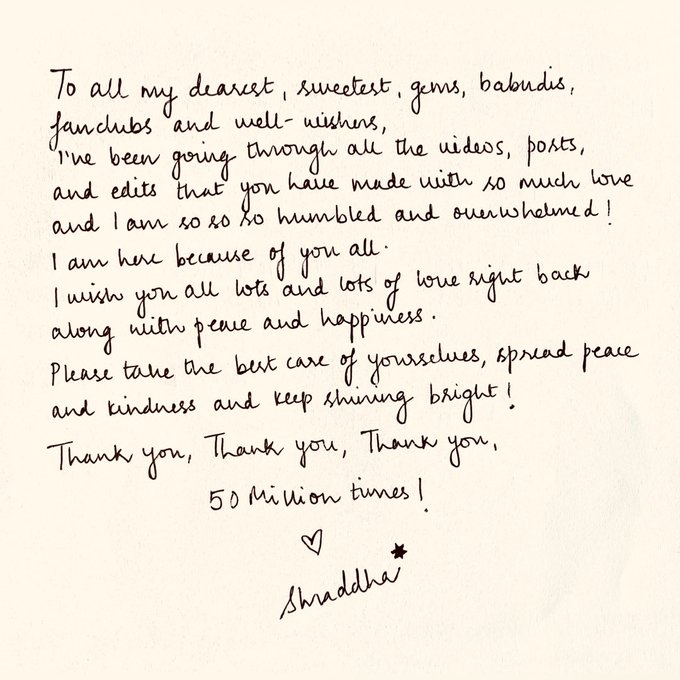 To all my dearest, sweetest, gems, babudis,
fanclubs and well-wishers,
I've been going through all the videos, posts,
and edits that you have made with so much love
and I am so so so humbled and overwhelmed!
I am here because of you all.
I wish you all lots and lots of love right back
along with peace and happiness.
Please take the best care of yourselves, spread peace
and kindness and keep shining bright!
Thank you, Thank you, Thank you,
50 Million times!
♡
Shraddha*